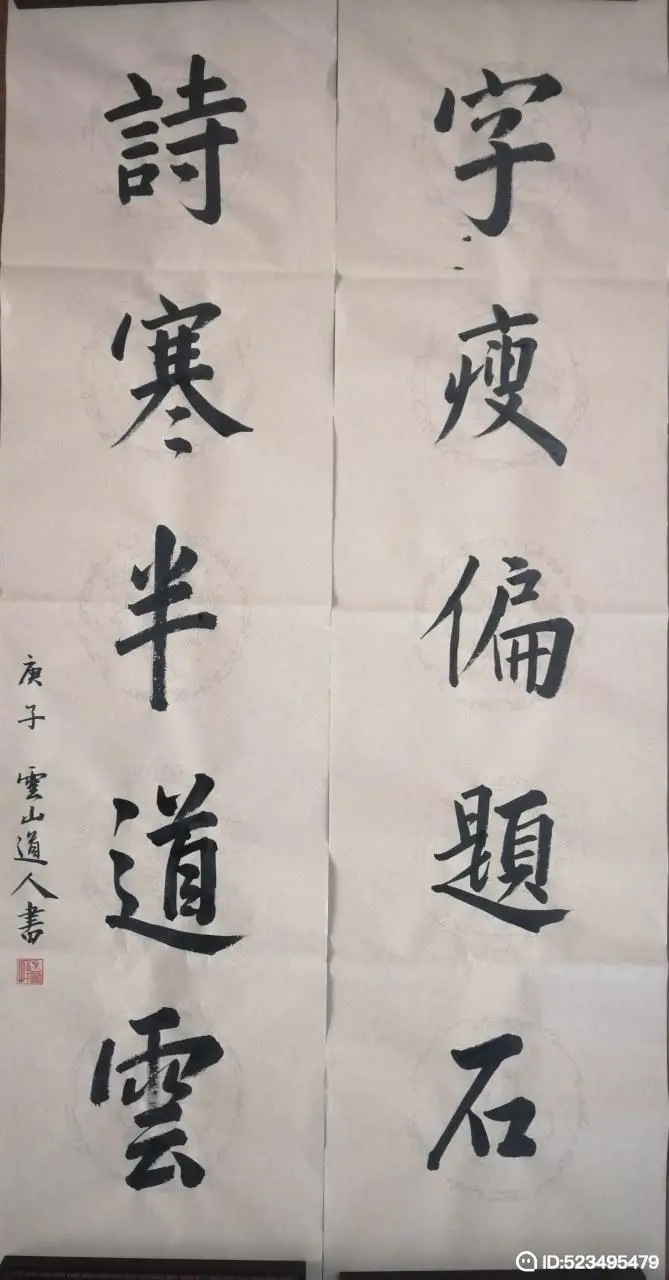 字瘦偏題石
詩寒半道雲
庚子 雲山道人書
ID:523495479